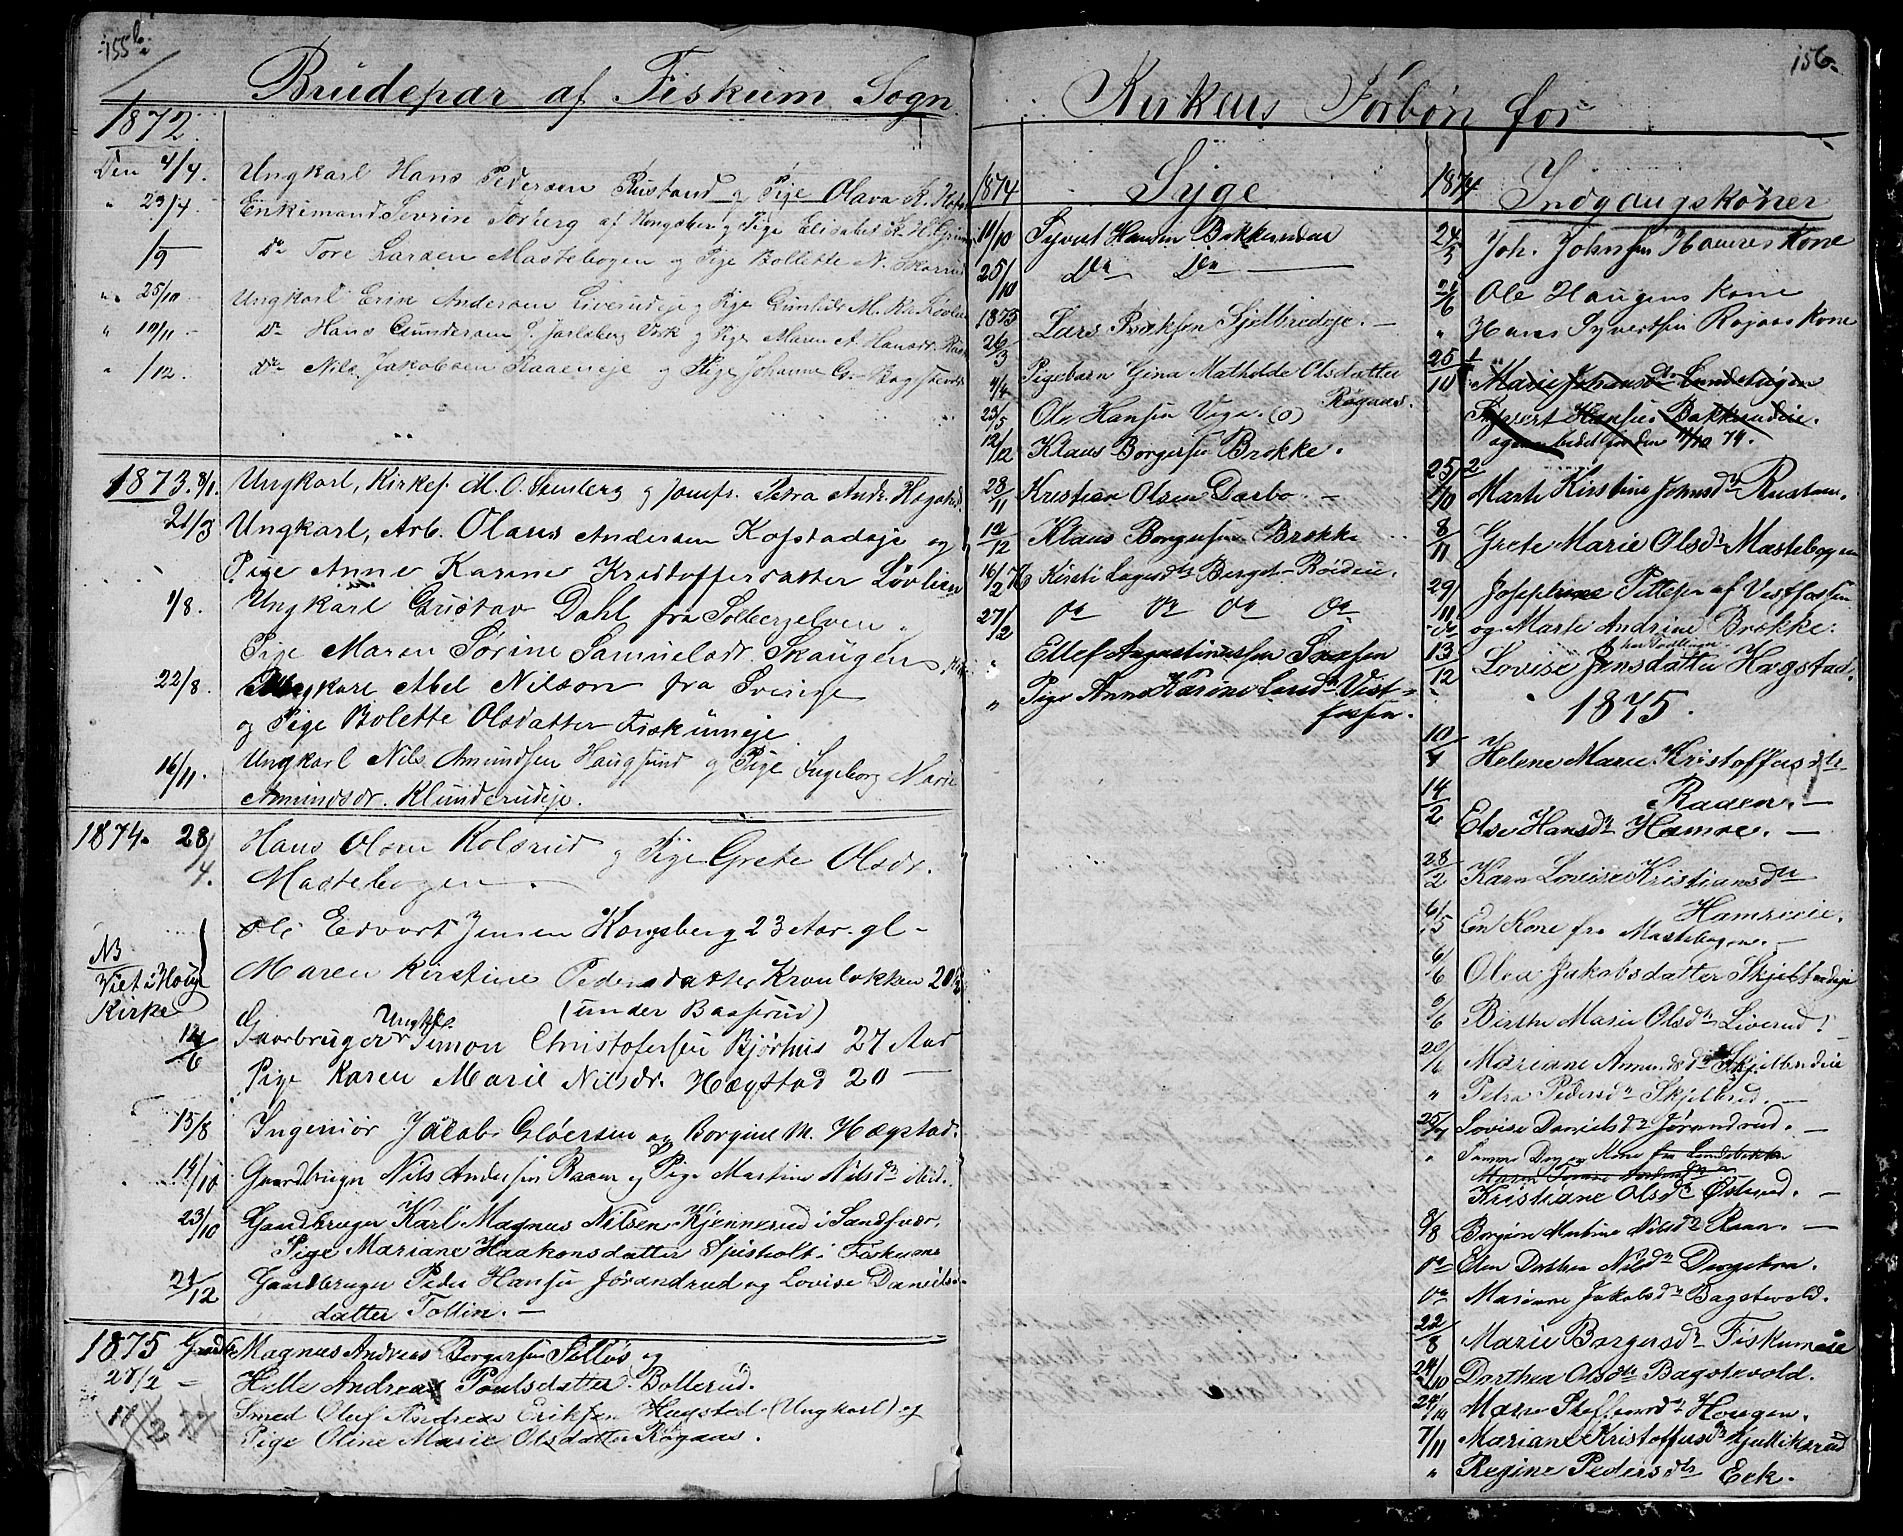 155b.
Brudepar af Fiskum Sogn
1872
Den 4/4. Ungkarl Hans Pedersen Rustand og Pige Olava
" 23/4 Enkemand Sevrin Torberg af Kongsberg Pige Elisabet
1/9 Do Tore Larsen Mastebogen og Pige Bollette N. Skarrud
" 25/10 Ungkarl Erik Andersen Liverudeje og Pige Gunhild M.
" 10/11 - Do Hans Gundersen Jarlsberg Værk og Pige Maren A. Hansdr.
" 1/12. Do Nils Jakobsen Raaeneje og Pige Johanne G. Bagstevold
1873. 8/1. Ungkarl, Kirkes. M. O. Stenberg og Jomfr. Petra Andr. Hægstad
21/3 Ungkarl, Arb. Olaus Andersen Kofstadeje og
Pige Anne Karine Kristoffersdatter Løvlien
1/8. Ungkarl Gustav Dahl fra Solbergelven
Pige Maren Sørine Samuelsdr. Skaugen
22/8. Ungkarl Abel Nilson fra Sverige
og Pige Bolette Olsdatter Fiskumeje
16/11. Ungkarl Nils Amundsen Haugsund og Pige Ingeborg Marie
Amundsdr. Klunderudeje.
1874. 28/4. Hans Olsen Kolsrud og Pige Grete Olsdr.
Mastebogen.
Ole Edvart Jensen Kongsberg 23 Aar gl -
NB Viet i Houg Kirke
Maren Kirstine Pedersdatter Kronløkken 20
(under Baaserud)
12/6 Gaarbruger Ungk. Simon Christofersen Bjørhus 27 Aar
Pige Karen Marie Nilsdr. Hægstad 20 —
15/8 Ingeniør Jacob Gløersen og Borgine M. Hægstad.
14/10 Gaardbruger Nils Andersen Raaen og Pige Martine Nilsdr
23/10 Gaardbruger Karl Magnus Nilsen Kjennerud i Sandsvær.
Pige Mariane Haakonsdatter Spisholt i Fiskum
21/12 Gaardbruger Peder Hansen Jørandrud og Lovise Daniels-
datter Tollin. —
1875 Gaardb Magnus Andreas Borgersen Sellos og
28/2 — Helle Andrea Poulsdatter Bollerud.
Smed Oluf Andreas Eriksen Hægstad (Ungkarl) og
Pige Oline Marie Olsdatter Røgaas
156.
Kirkens Forbøn for
1874 Syge
11/10 Syvert Hansen Bakkerudeie
25/10 Do Do —
1873 Lars Eriksen Sjelbredeje. —
26/3
4/4 Pigebarn Gina Mathilde Olsdatter
Røgaas.
23/5 Ole Hansen Vego. (o)
12/12 Klaus Borgersen Brekke.
28/11 Kristian Olsen Darbo. —
12/12 Klaus Borgersen Brekke
16/2 76 Kirsti Lagesdtr Berget-Røideie.
27/2 Do Do Do Do
" Ellef Augustinussen
" Pige Anne Karine Larsdtr Vest-
fossen.
1874 Indgangskoner
24/5 Joh. Johnsen Hameres Kone
21/6 Ole Haugens Kone
" Hans Syvertsen Røgaas Kone
25/10 1 Marie Johansdtr Lundetegen
Syvert Hansen Bakkerudeie.
ogsaa bedet for den 11/10 74.
25/10 2 Marte Kirstine Johnsdtr Rustan.
8/11 Grete Marie Olsdr Mastebogen
29/11 Josephine Pettersen af Vestfossen
do og Marte Andrine Brekke.
13/12 Lovise Jensdatter Hægstad.
1875.
10/1 Helene Marie Kristoffersdtr
Raaen. —
14/2 Else Hansdr Hamre. —
28/2 Karn Lovise Kristiansdtr
Hamreeie.
6/5 En Kone fra Mastebogen. —
6/6 Olea Jakobsdatter Skjelbredeje
6/6 Birthe Marie Olsdr Liverud!
20/6 Mariane Amundsdr Skjelbredeie
" Petra Pedersdr Skjelbred. —
25/7 Lovise Danielsdr Jørandrud. —
" Samme Dag en Kone fra Lundebakken
Maren
Kristiane Olsdr Østerud. —
8/8 Borgine Martine Nilsdr Raaen. —
Do Elen Dorthea Nilsdr
Do Mariane Jakobsdr Bagstevold.
22/8 Marie Borgersdr Fiskumeie
24/10 Dorthea Olsdtr Bagstevold.
24/10 Maren Steffensdr Hougen.
7/11 Mariane Kristoffersdr Gjelliksrud
" Regine Pedersdtr Eek.